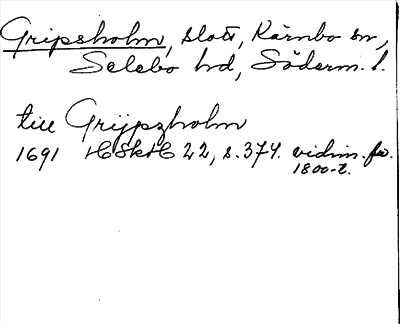 Gripsholm, slott, Kärnbo sn,
Selebo hd, Söderm. l.
till Grijpzholm
1691 HSkH 22, s. 374. vidim. fr.
1800-t.